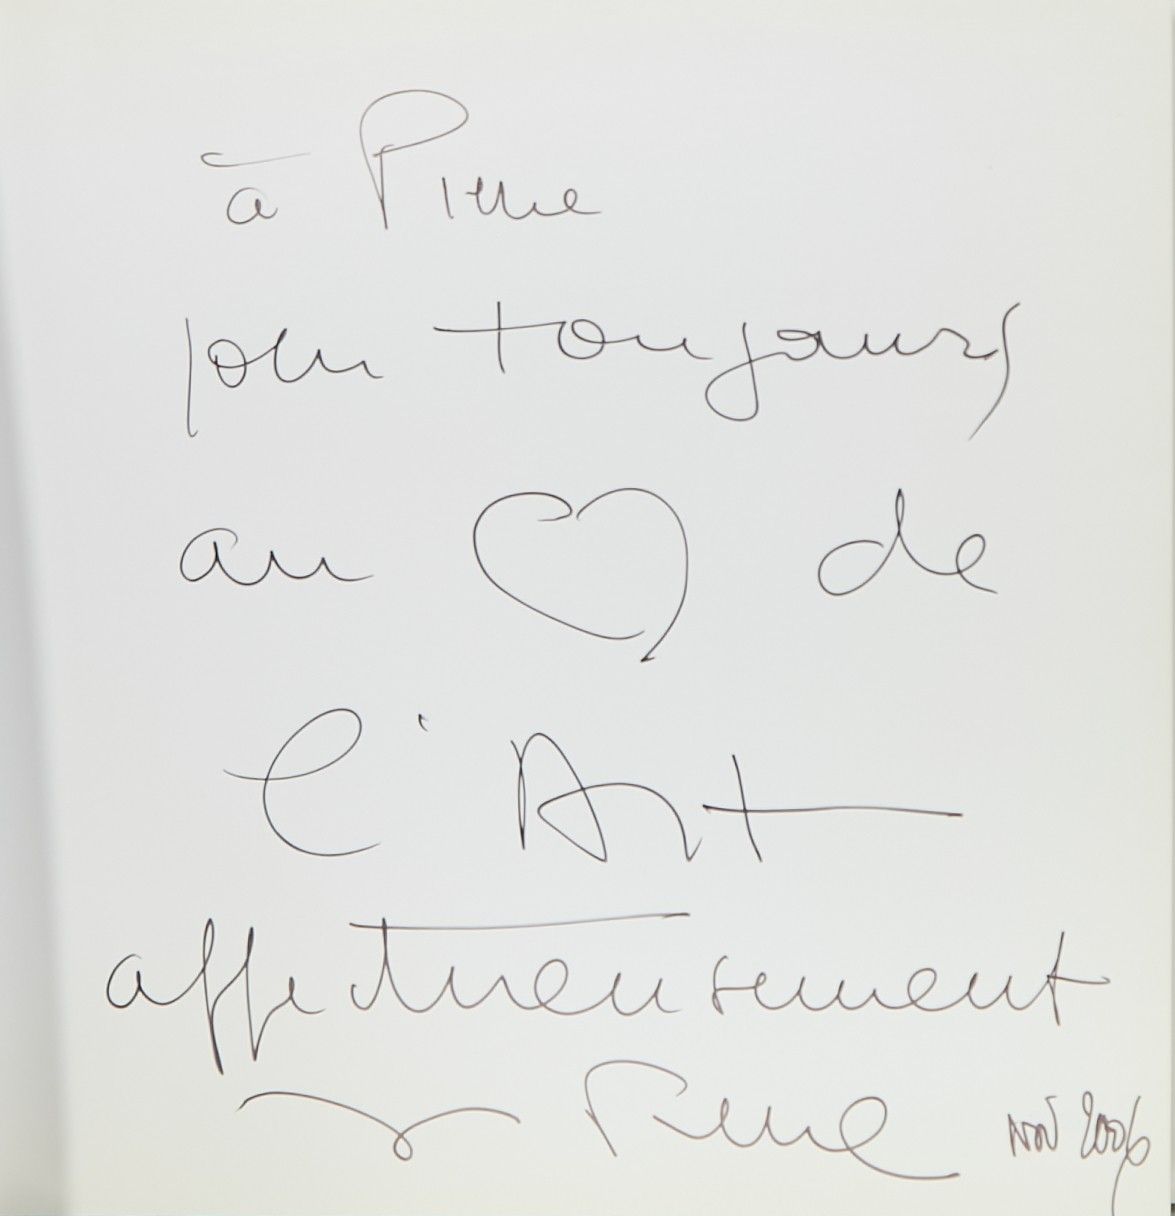 à Pierre
pour toujours
au ♡ de
l'Art
affectueusement
Nov 2006